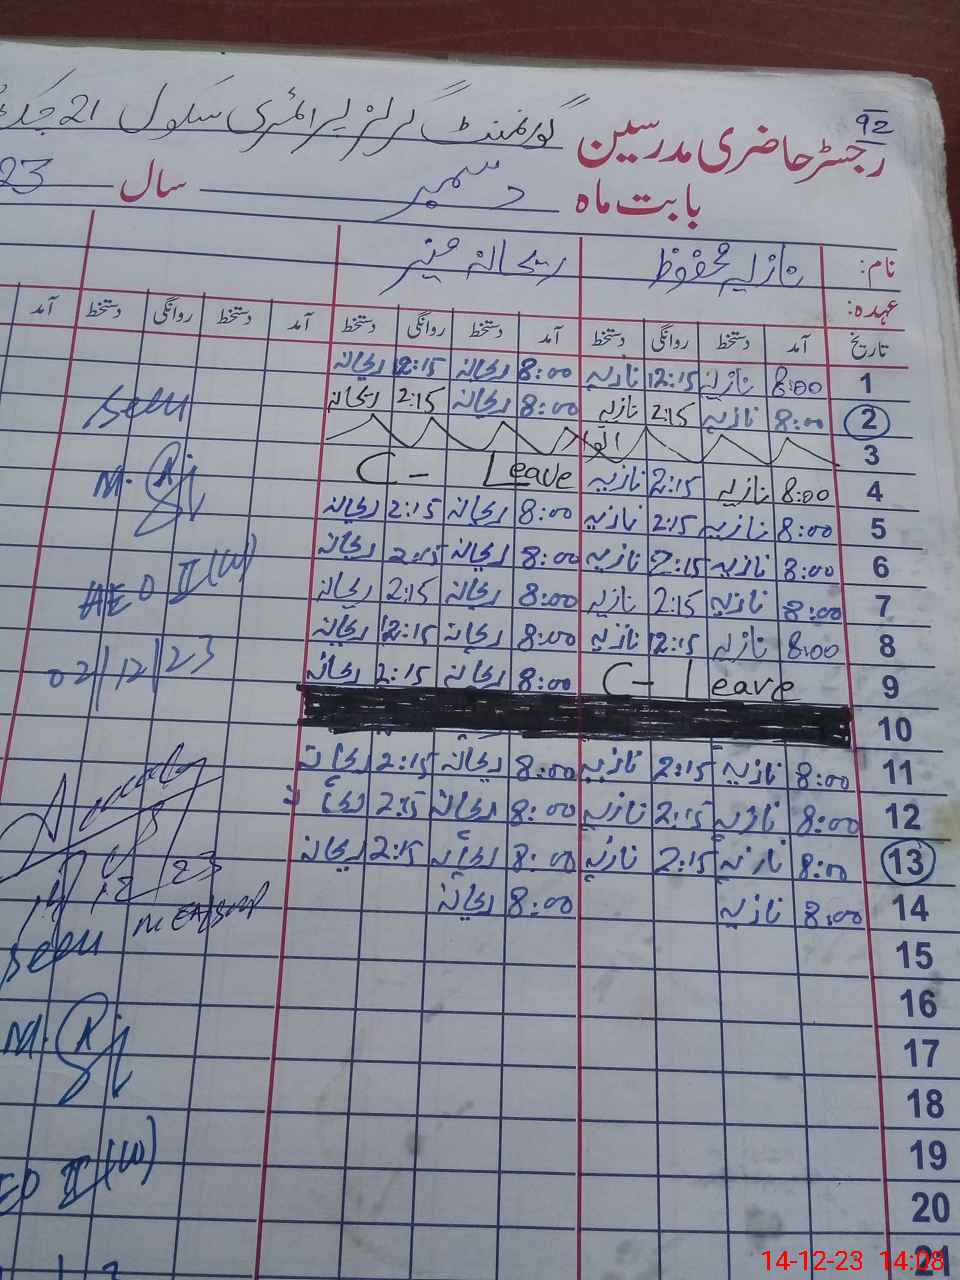 92
رجسٹر حاضری مدرسین گورنمنٹ گرلز پرائمری سکول 21
بابت ماہ دسمبر سال 23
نام: نازیہ محفوظ ریحانہ منیر
عہدہ:
تاریخ آمد دستخط روانگی دستخط آمد دستخط روانگی دستخط آمد دستخط روانگی دستخط آمد
1 8:00 نازیہ 12:15 نازیہ 8:00 ریحانہ 12:15 ریحانہ
2 8:00 نازیہ 2:15 نازیہ 8:00 ریحانہ 2:15 ریحانہ seen
3 اتوار
4 8:00 نازیہ 2:15 نازیہ C- Leave
5 8:00 نازیہ 2:15 نازیہ 8:00 ریحانہ 2:15 ریحانہ
6 8:00 نازیہ 2:15 نازیہ 8:00 ریحانہ 2:15 ریحانہ
7 8:00 نازیہ 2:15 نازیہ 8:00 ریحانہ 2:15 ریحانہ AEO II (W)
8 8:00 نازیہ 12:15 نازیہ 8:00 ریحانہ 12:15 ریحانہ
9 C- Leave 8:00 ریحانہ 2:15 ریحانہ 02/12/23
10
11 8:00 نازیہ 2:15 نازیہ 8:00 ریحانہ 2:15 ریحانہ
12 8:00 نازیہ 2:15 نازیہ 8:00 ریحانہ 2:15 ریحانہ
13 8:00 نازیہ 2:15 نازیہ 8:00 ریحانہ 2:15 ریحانہ
14 8:00 نازیہ 8:00 ریحانہ
seen
15
16
17
18
19
20
21
14-12-23 14:08